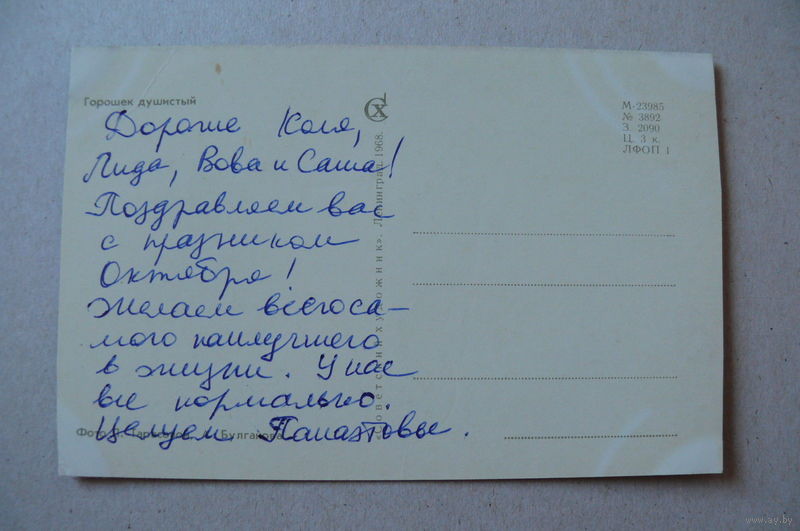 Горошек душистый
Дорогие Коля,
Лида, Вова и Саша!
Поздравляем вас
с празником
Октября!
Желаем всего са-
мого наилучшего
в жизни. У нас
все нормально.
Целуем
Фото Булгакова
«Советский художник». Ленинград 1968.
СХ
М-23985
№ 3892
З. 2090
Ц. 3 к.
ЛФОП 1
www.ay.by